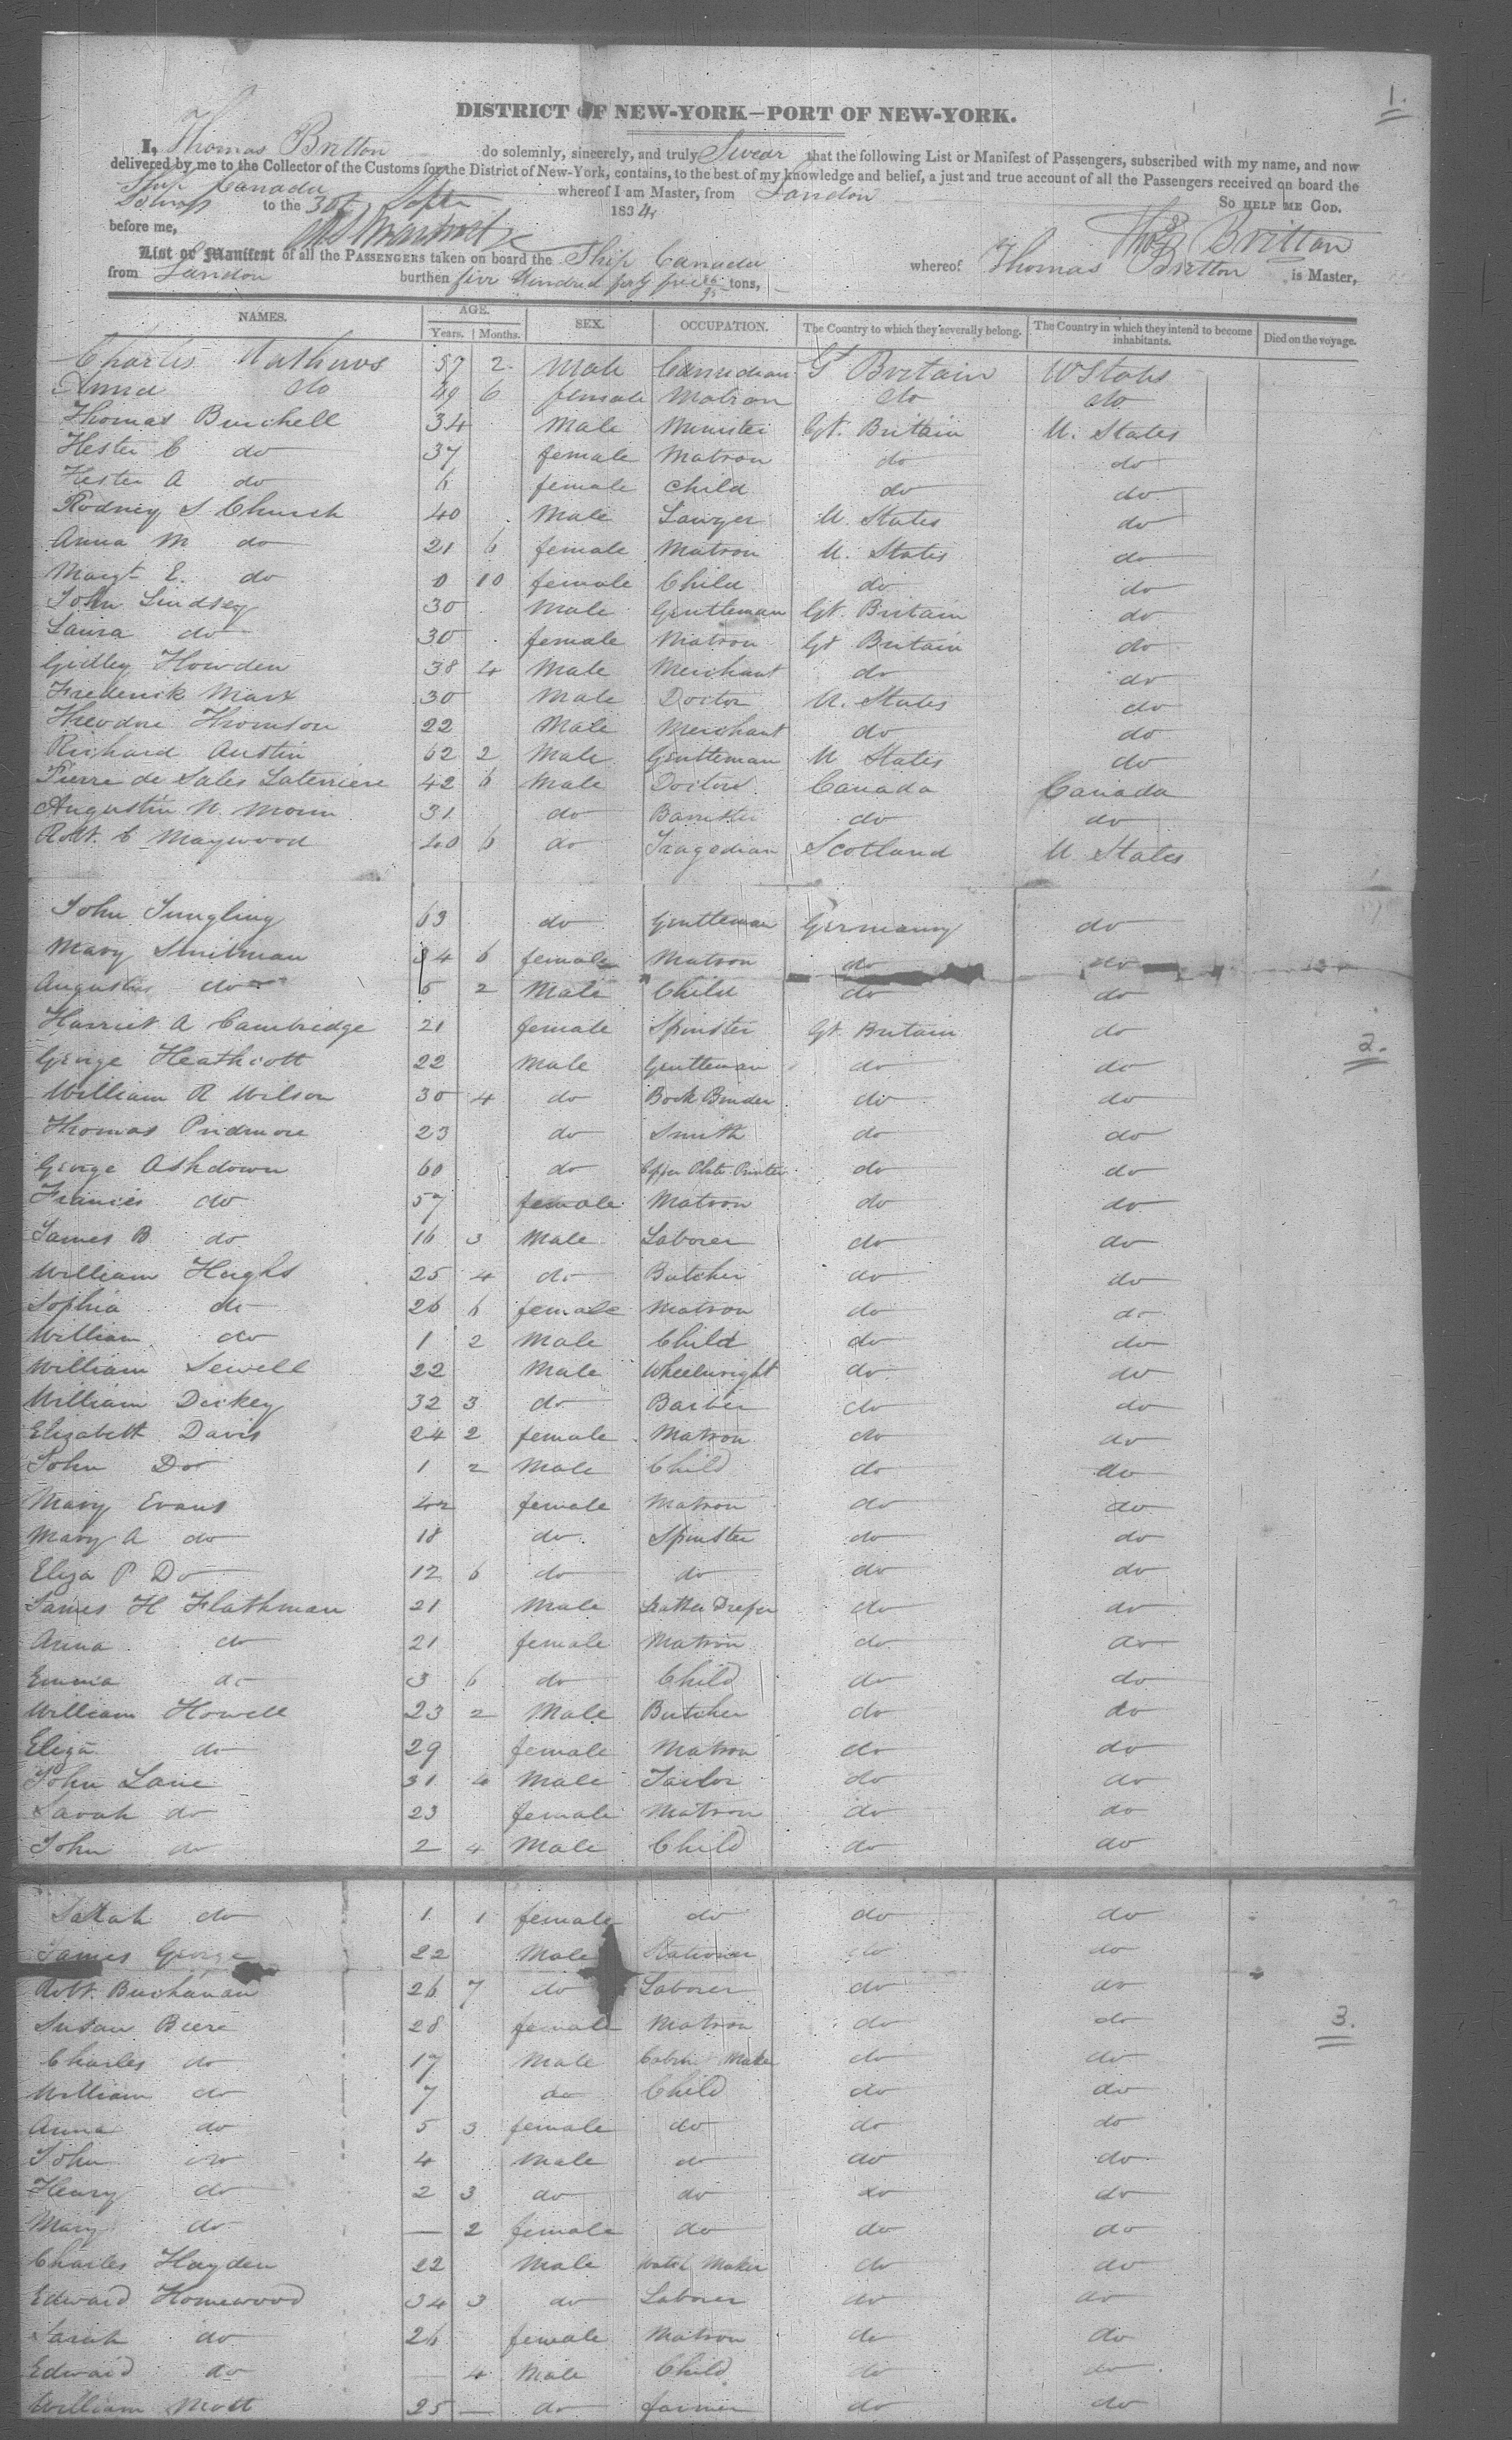 1.
DISTRICT OF NEW-YORK—PORT OF NEW-YORK.
I, Thomas Britton do solemnly, sincerely, and truly Swear that the following List or Manifest of Passengers, subscribed with my name, and now
delivered by me to the Collector of the Customs for the District of New-York, contains, to the best of my knowledge and belief, a just and true account of all the Passengers received on board the
Ship Canada whereof I am Master, from London
to the 30 Septr 1834 So HELP ME GOD.
before me, Thos Britton
List or Manifest of all the PASSENGERS taken on board the Ship Canada whereof Thomas Britton is Master,
from London burthen five Hundred forty five tons,
NAMES. AGE. SEX. OCCUPATION. The Country to which they severally belong. The Country in which they intend to become inhabitants. Died on the voyage.
Years. Months.
Charles Mathews 57 2 Male Comedian Gt Britain U States
Anna do 49 6 female Matron do do
Thomas Burchell 34 Male Minister Gt. Britain U. States
Hester C do 37 female Matron do do
Hester A do 6 female Child do do
Rodney S Church 40 Male Lawyer U. States do
Anna M do 21 6 female Matron U. States do
Margt E. do 0 10 female Child do do
John Lindsey 30 Male Gentleman Gt. Britain do
Laura do 30 female Matron Gt Britain do
Gidley Howden 38 4 Male Merchant do do
Frederick Marx 30 Male Doctor U. States do
Theodore Thomson 22 Male Merchant do do
Richard Austin 62 2 Male Gentleman U States do
Pierre de Sales Laterriere 42 6 Male Doctor Canada Canada
Augustin N. Morin 31 do Barrister do do
Robt. C Maywood 40 6 do Tragedian Scotland U States
John Jungling 63 do Gentleman Germany do
Mary 34 6 female Matron do do
Augustus do 5 2 Male Child do do
Harriet A Cambridge 21 female Spinster Gt. Britain do
2.
George Heathcott 22 Male Gentleman do do
William R Wilson 30 4 do Book Binder do do
Thomas Pridmore 23 do Smith do do
George Ashdown 60 do Copper Plate Printer do do
Frances do 57 female Matron do do
James B do 16 3 Male Laborer do do
William Heighs 25 4 do Butcher do do
Sophia do 26 6 female Matron do do
William do 1 2 Male Child do do
William Sewell 22 Male Wheelwright do do
William Dickey 32 3 do Barber do do
Elizabeth Davis 24 2 female Matron do do
John Do 1 2 Male Child do do
Mary Evans 42 female Matron do do
Mary A do 18 do Spinster do do
Eliza P Do 12 6 do do do do
James H Flathman 21 Male Leather Dresser do do
Anna do 21 female Matron do do
Emma do 3 6 do Child do do
William Howell 23 2 Male Butcher do do
Eliza do 29 female Matron do do
John Lane 31 4 Male Tailor do do
Sarah do 23 female Matron do do
John do 2 4 Male Child do do
Sarah do 1 1 female do do do
James George 22 Male Stationer do do
Robt. Buchanan 26 7 do Laborer do do
Susan Beere 28 female Matron do do
3.
Charles do 17 Male Cabinet Maker do do
William do 7 do Child do do
Anna do 5 3 female do do do
John do 4 Male do do do
Henry do 2 3 do do do do
Mary do — 2 female do do do
Charles Hayden 22 Male Watch Maker do do
Edward Homewood 34 3 do Laborer do do
Sarah do 26 female Matron do do
Edward do — 4 Male Child do do
William Mott 25 — do farmer do do